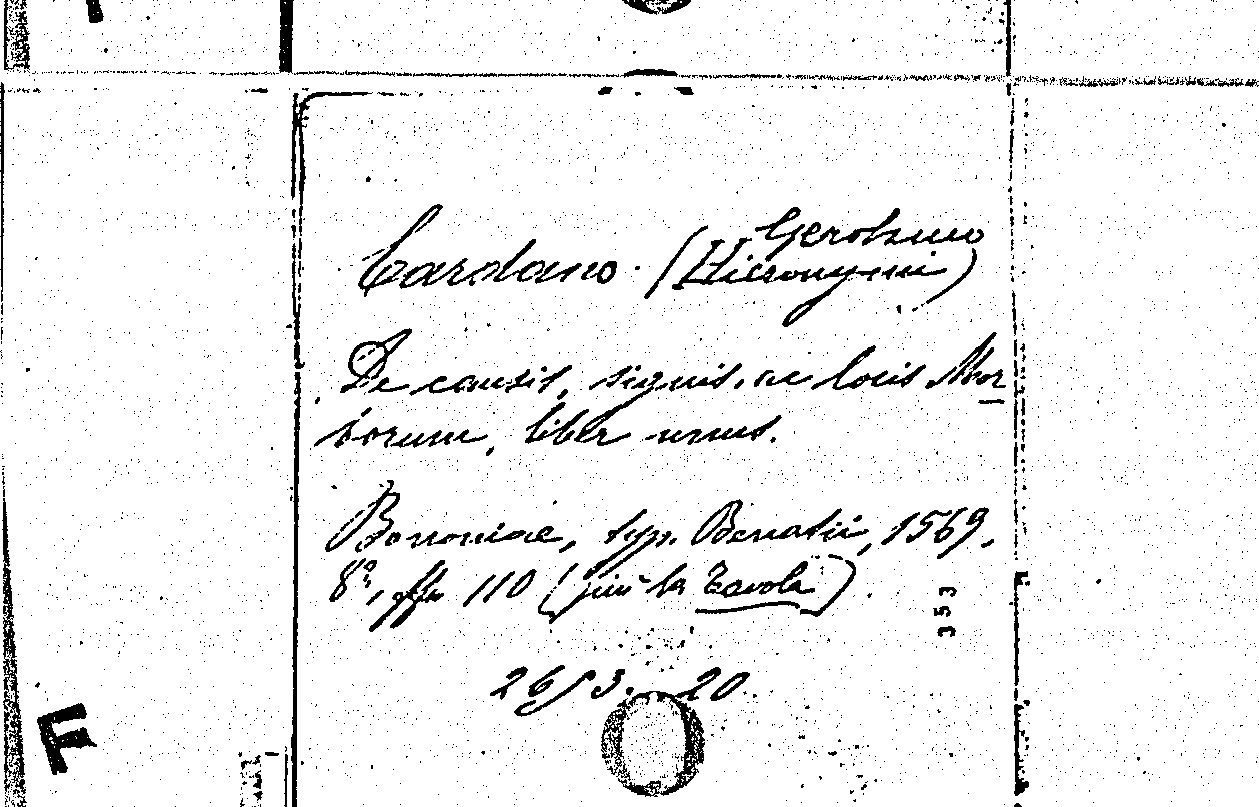 Cardano. (Hieronymi)
Gerolamo
De causis, signis, ac locis Mor
borum, liber unus.
Bononiae, typ. Benatii, 1569.
8º, ff. 110 (più la Tavola).
353
2653. 20
F